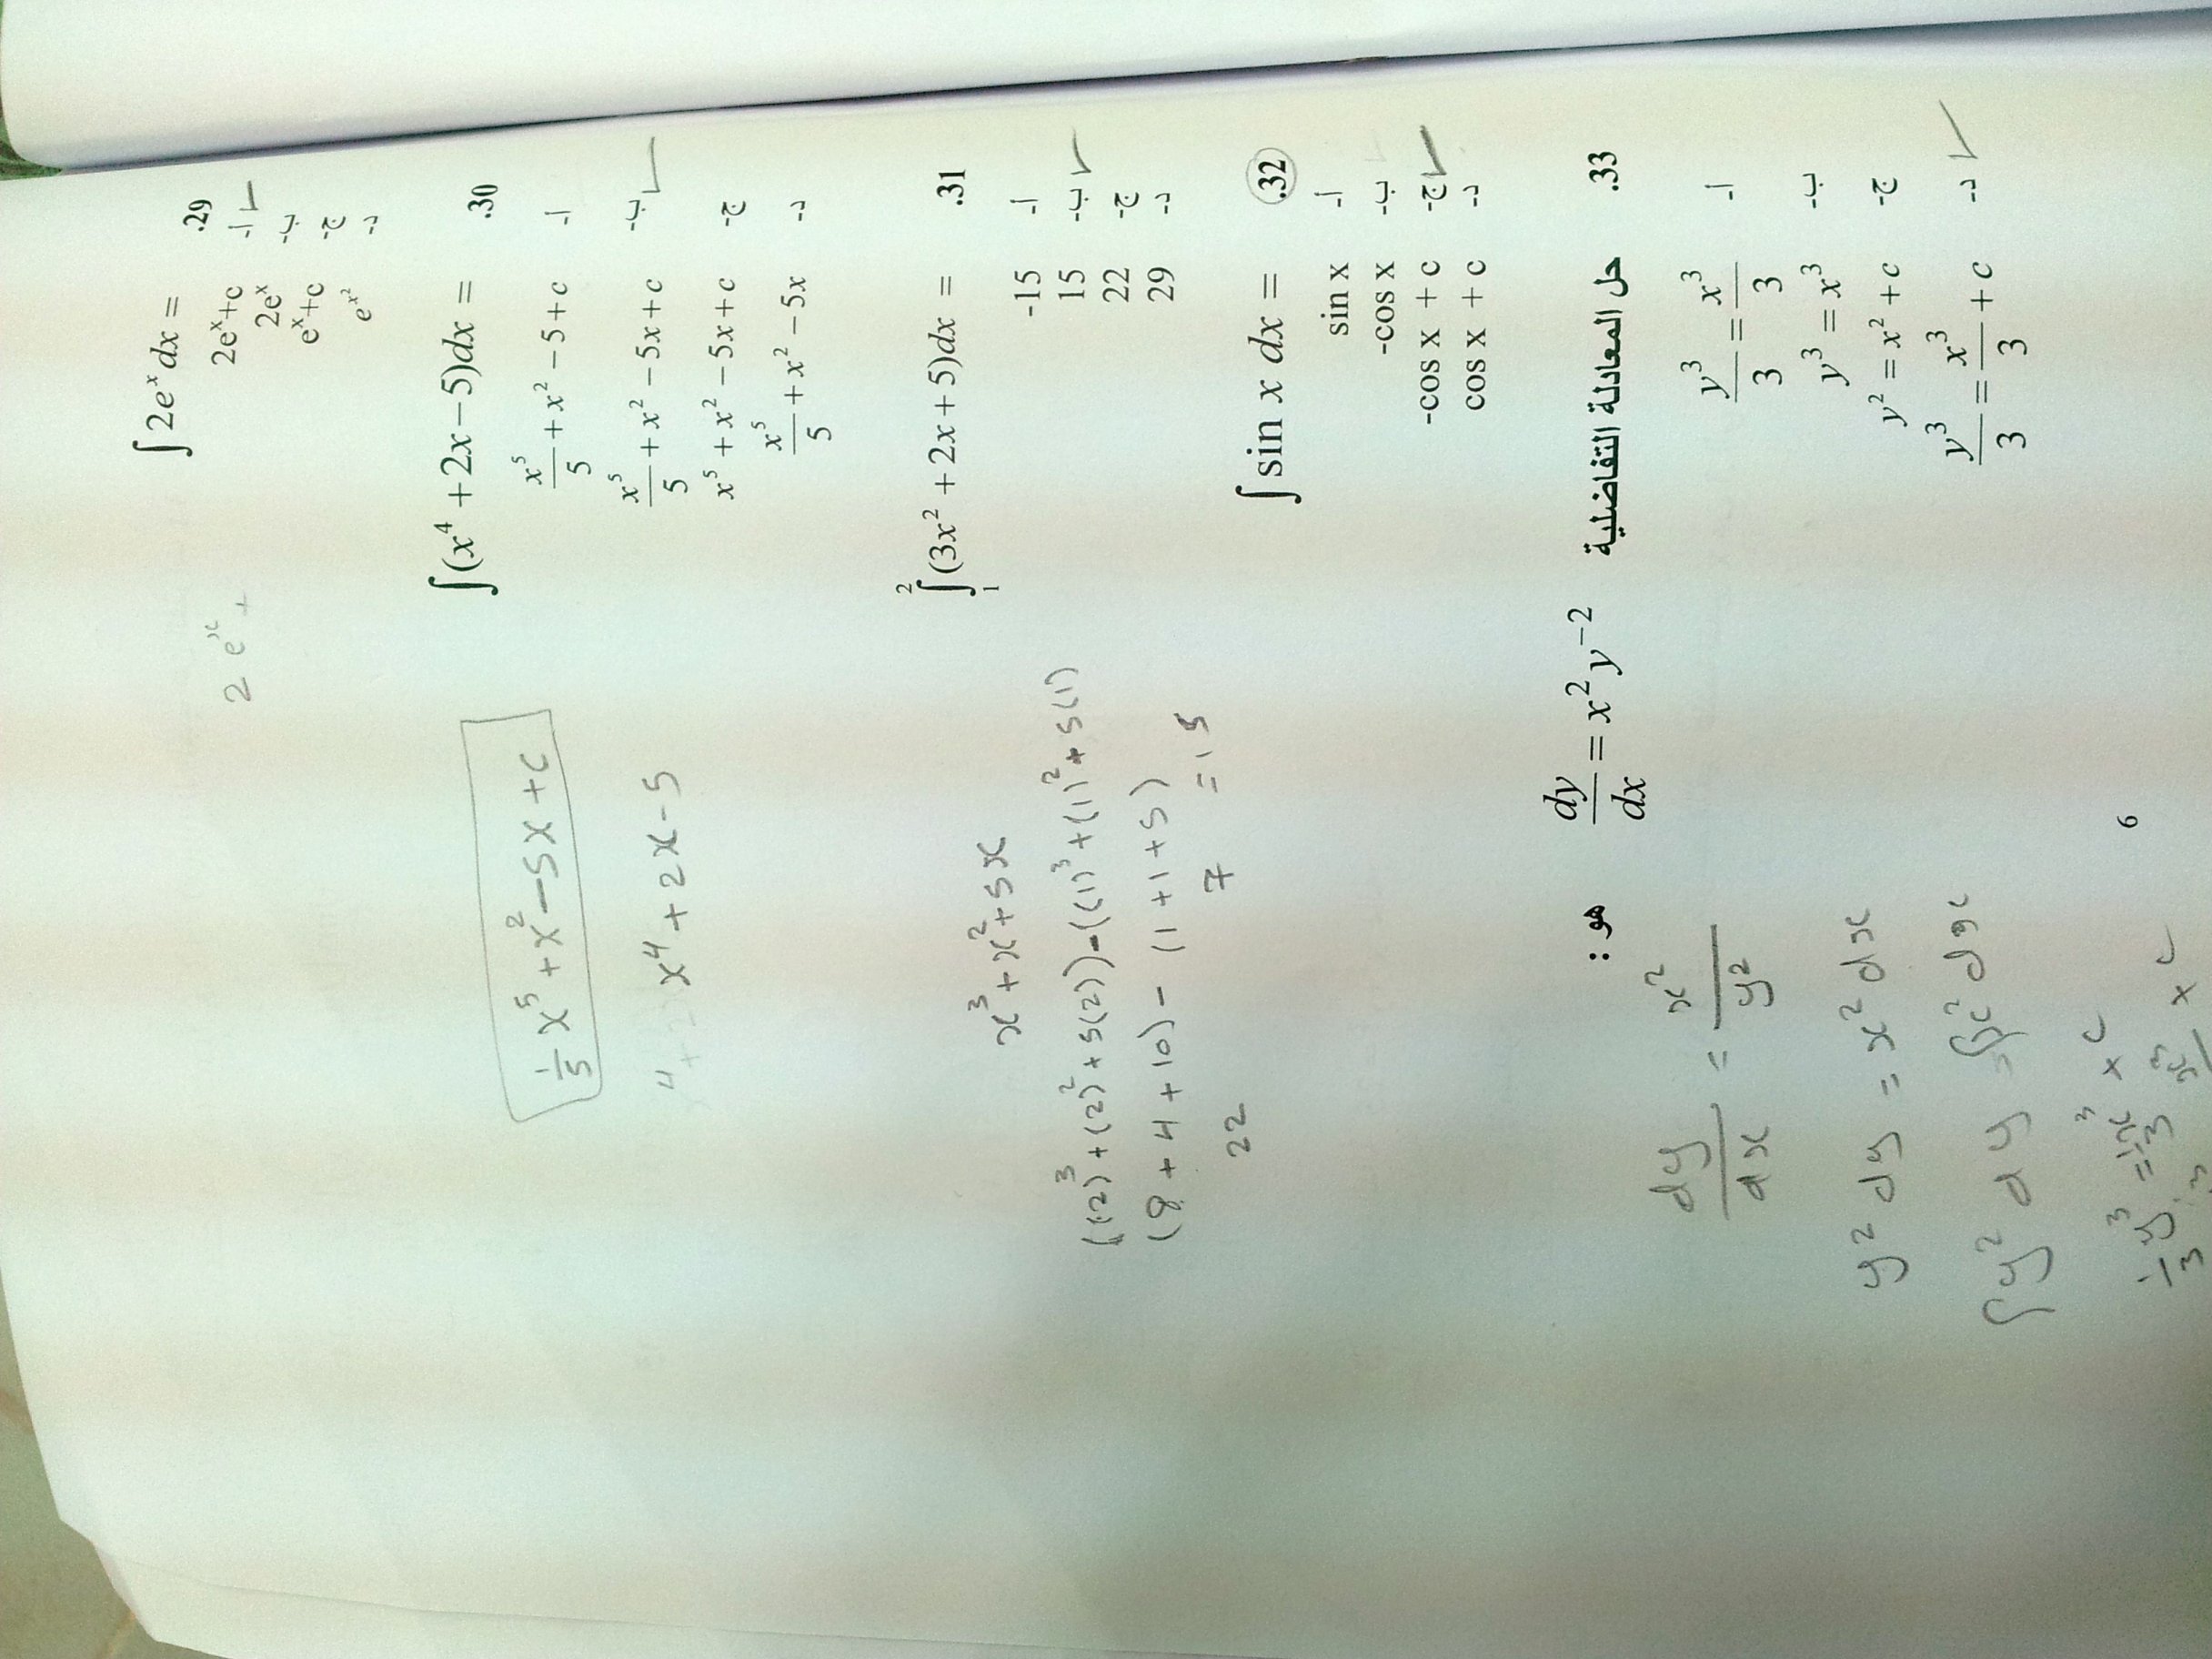 .29 ∫2eˣdx =
أ- 2eˣ+c
ب- 2eˣ
ج- eˣ+c
د- e^(x²)
2 eˣ +
.30 ∫(x⁴ + 2x − 5)dx =
أ- x⁵/5 + x² − 5 + c
ب- x⁵/5 + x² − 5x + c
ج- x⁵ + x² − 5x + c
د- x⁵/5 + x² − 5x
1/5 x⁵ + x² − 5x + c
x⁴ + 2x − 5
.31 ∫₁²(3x² + 2x + 5)dx =
أ- -15
ب- 15
ج- 22
د- 29
x³ + x² + 5x
((2)³ + (2)² + 5(2)) − ((1)³ + (1)² + 5(1)
(8 + 4 + 10) − (1 + 1 + 5)
22 7 = 15
.32 ∫sin x dx =
أ- sin x
ب- -cos x
ج- -cos x + c
د- cos x + c
.33 حل المعادلة التفاضلية dy/dx = x²y⁻² هو :
أ- y³/3 = x³/3
ب- y³ = x³
ج- y² = x² + c
د- y³/3 = x³/3 + c
dy/dx = x²/y²
y² dy = x² dx
∫y² dy = ∫x² dx
1/3 y³ = 1/3 x³ + c
6